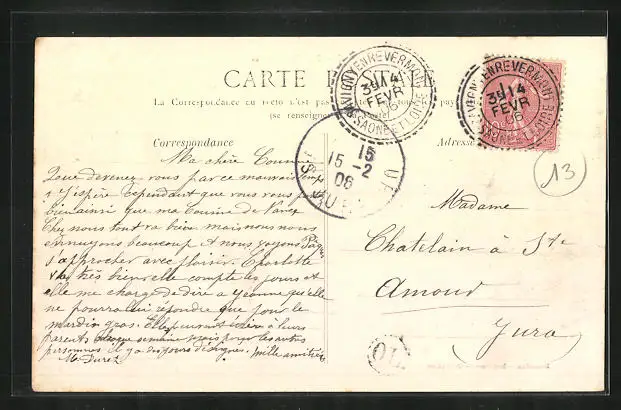 CARTE POSTALE
La Correspondance au recto n'est pas
(se renseigner
Correspondance
Adresse
SAVIGNY EN REVERMONT
14
FEVR
06
SAONE ET LOIRE
SAVIGNY EN REVERMONT
14
FEVR
06
SAONE ET LOIRE
15
15 -2
06
13
Ma chère Cousine
Que devenez vous par ce mauvais temps
J'espère cependant que vous vous portez
bien ainsi que ma Cousine de
Chez nous tout va bien mais nous nous
ennuyons beaucoup et nous voyons Pâques
s'approcher avec plaisir. Charlotte
va très bien elle compte les jours et
elle me charge de dire à Yvonne qu'elle
ne pourra lui répondre que pour le
mardi gras. Elle peuvent écrire à leurs
parents chaque semaine mais pour les autres
personnes il y a des jours désignés. Mille amitiés
M. Durez
Madame
Chatelain à Ste
Amour
Jura